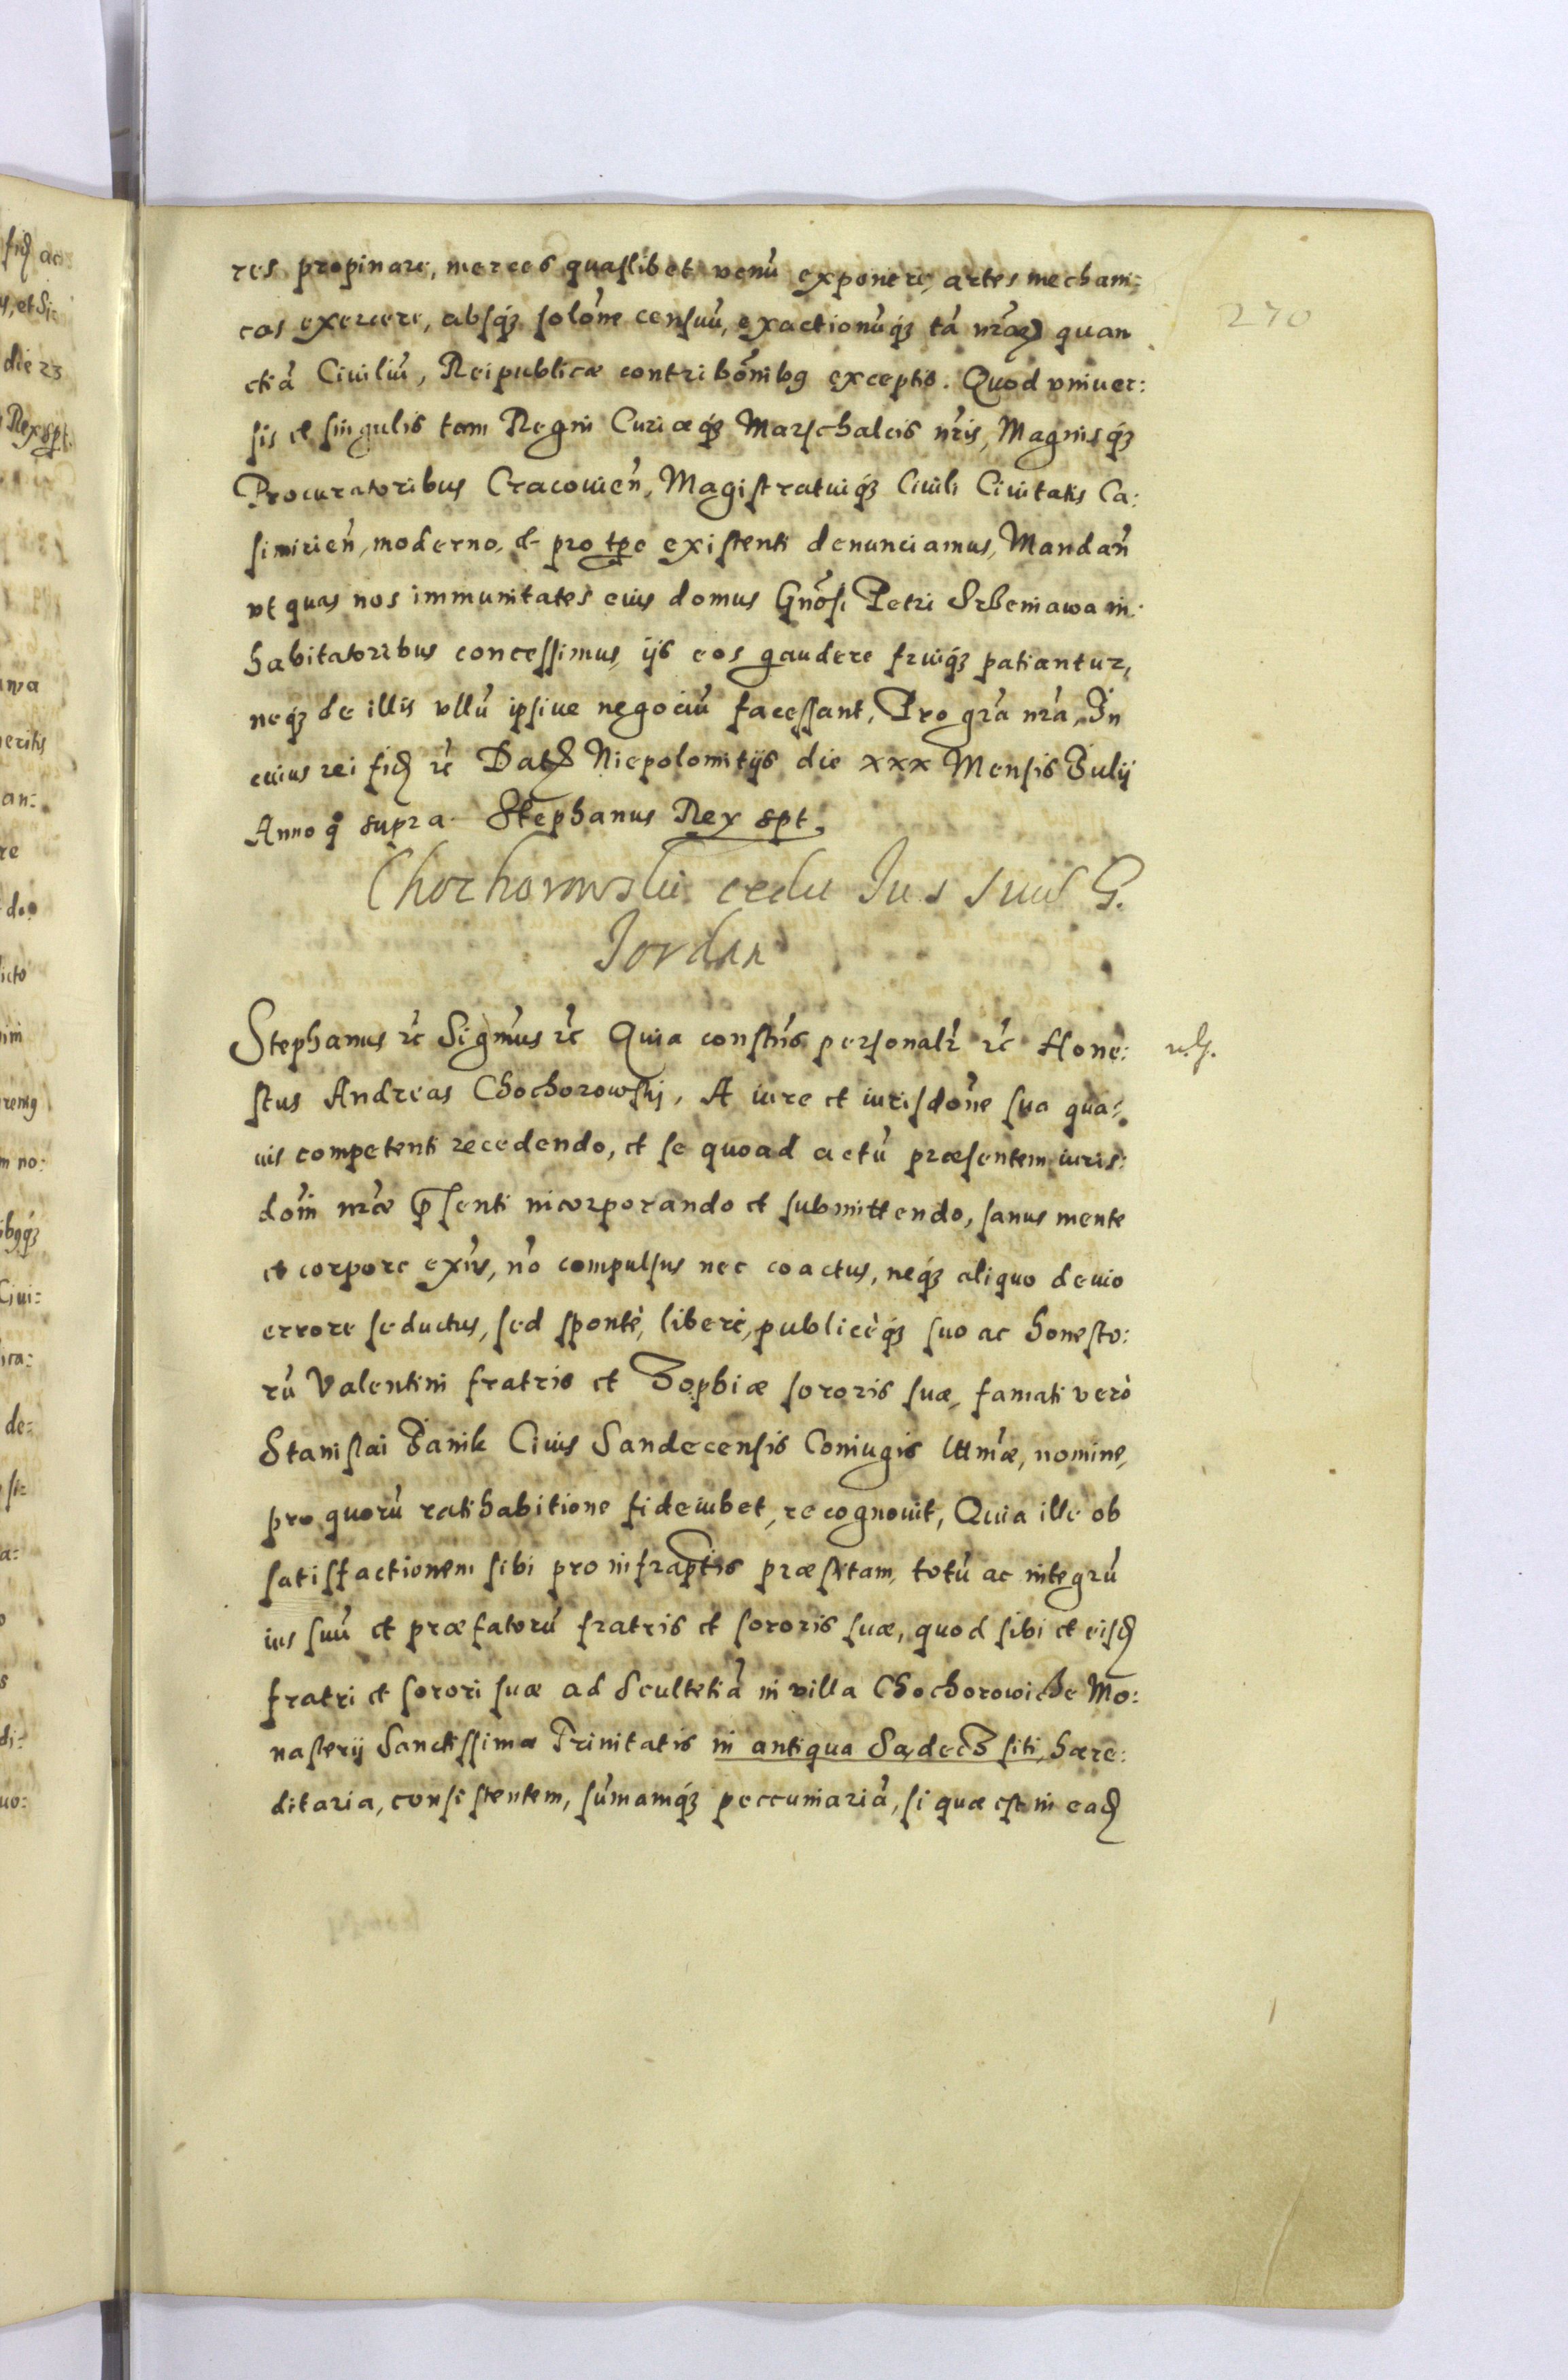 270
res propinare, merces quaslibet venū exponere, artes mechani:
cas exercere, absq́ꝫ solōne censuū, exactionūq́ꝫ tā nrāꝝ quan
etiā Ciuiliū, Reipublicæ contribōnibꝯ exceptis. Quod vniuer:
sis et singulis tam Regni Curiæq́ꝫ Marschalcis nr̄is, Magnisq́ꝫ
Procuratoribus Cracouien̄, Magistratuiq́ꝫ Ciuili Ciuitatis Ca:
simirien̄, moderno, et pro tp̄e existenti denunciamus, Mandan̄
vt quas nos immunitates eius domus Gnōsi Petri Srbeniawa in:
habitatoribus concessimus, ijs eos gaudere fruiq́ꝫ patiantur,
neq́ꝫ de illis vllū ipsiue negociū facessant, Pro gr̄a nr̄a, In
cuius rei fid̄ rc̄ Dat̄ Niepolomitijs die xxx Mensis Julij
Anno q̄ supra. Stephanus Rex spt.
Chochorowski cedit Jus suū G.
Jordan
Stephanus rc̄ Sigm̄us rc̄ Quia constn̄s personalr̄ rc̄ Hone:
stus Andreas Chochorowskj, A iure et iurisdōne sua qua:
uis competenti recedendo, et se quoad actū præsentem iuris:
dōni nr̄æ p̄senti incorporando et submittendo, sanus mente
et corpore exn̄s, nō compulsus nec coactus, neq́ꝫ aliquo deuio
errore seductus, sed spontè, liberè, publicèq́ꝫ suo ac honesto:
rū Valentini fratris et Zophiæ sororis suæ, famati verò
Stanislai Janik Ciuis Sandecensis Coniugis lttm̄æ, nomine,
pro quorū ratihabitione fideiubet, recognouit, Quia ille ob
satisfactionem sibi pro infrap̄tis præstitam, totū ac integrū
ius suū et præfatorū fratris et sororis suæ, quod sibi et eisd̄
fratri et sorori suæ ad Scultetiā in villa Chochorowiche Mo:
nasterij Sanctissimæ Trinitatis in antiqua Sądecz siti, hære:
ditaria, consistentem, sūmamq́ꝫ peccuniariā, si quæ est in ead̄